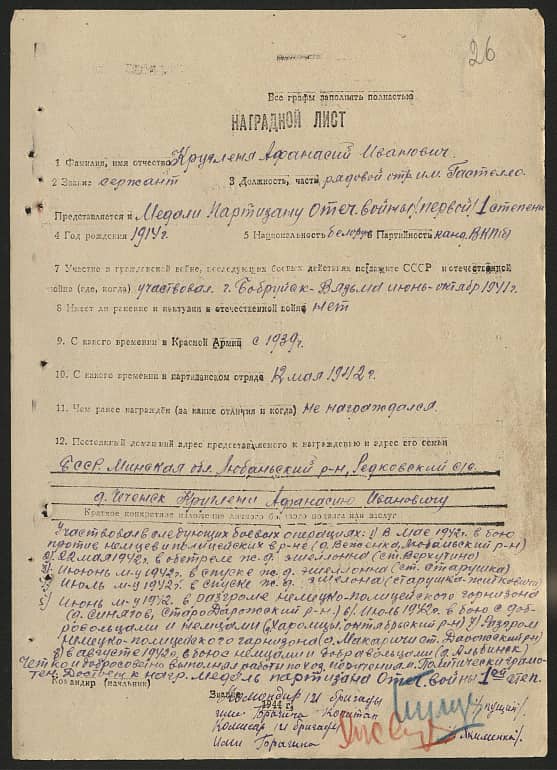 26
Все графы заполнять полностью
НАГРАДНОЙ ЛИСТ
1 Фамилия, имя отчество Кругленя Афанасий Иванович.
2 Звание сержант 3 Должность, часть рядовой отр. им. Гастелло.
Представляется к Медали Партизану Отеч. Войны /первой/ 1 степени
4 Год рождения 1914 г. 5 Национальность белорус Партийность канд. ВКП(б)
7 Участие в гражданской войне, последующих боевых действиях по защите СССР и отечественной
войне (где, когда) участвовал г. Бобруйск-Вязьма июнь-октябр 1941 г.
8 Имеет ли ранения и контузии в отечественной войне нет
9. С какого времени в Красной Армии с 1939 г.
10. С какого времени в партизанском отряде 12 мая 1942 г.
11. Чем ранее награждён (за какие отличия и когда) не награждался.
12. Постоянный домашний адрес представляемого к награждению и адрес его семьи
БССР. Минская обл. Любаньский р-н, Редковский с/с.
д. Кругленя Афанасию Ивановичу
Краткое конкретное изложение личного боевого подвига или заслуг
Участвовал в следующих боевых операциях: 1) В мае 1942 г. в бою
против немцев и полицейских в р-не (д. р-н)
2) 22 мая 1942 г. в обстреле ж.д. эшеллонна (ст. Верхутино)
Июнь м-ц 1942 г. в спуске ж.д. эшеллонна (ст. Старушка)
Июль м-ц 1942 г. в спуске ж.д. эшелонна (старушка-житковичи)
5) Июнь м-ц 1942 г. в разгроме немецко-полицейского горнизона
(д. Синягов, Стародарожский р-н.) 6) Июль 1942 г. в бою с доб-
ровольцами и немцами (октябрьский р-н) 7) Разгром
немецко-полицейского горнизона (д. Макаричи ст. Дарожский рн)
8) в августе 1942 г. в бою с немцами и добравольцами (д. Альбинск)
Четко и добросовестно выполнял работы по хоз. Политически грамо-
тен. Достоен к нагр. медаль партизана Отеч. войны 1ой степ.
Командир (начальник)
Звание Командир 121 бригады
1944 г.
им. Брагина Капитан
Комисар 121 бригады
им. Брагина /Якименко/